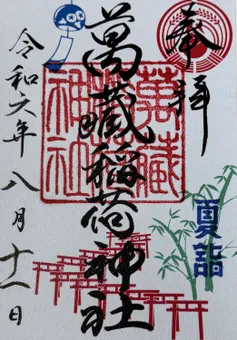 奉拝
萬藏稲荷神社
萬藏
神社
夏詣
令和六年八月十一日